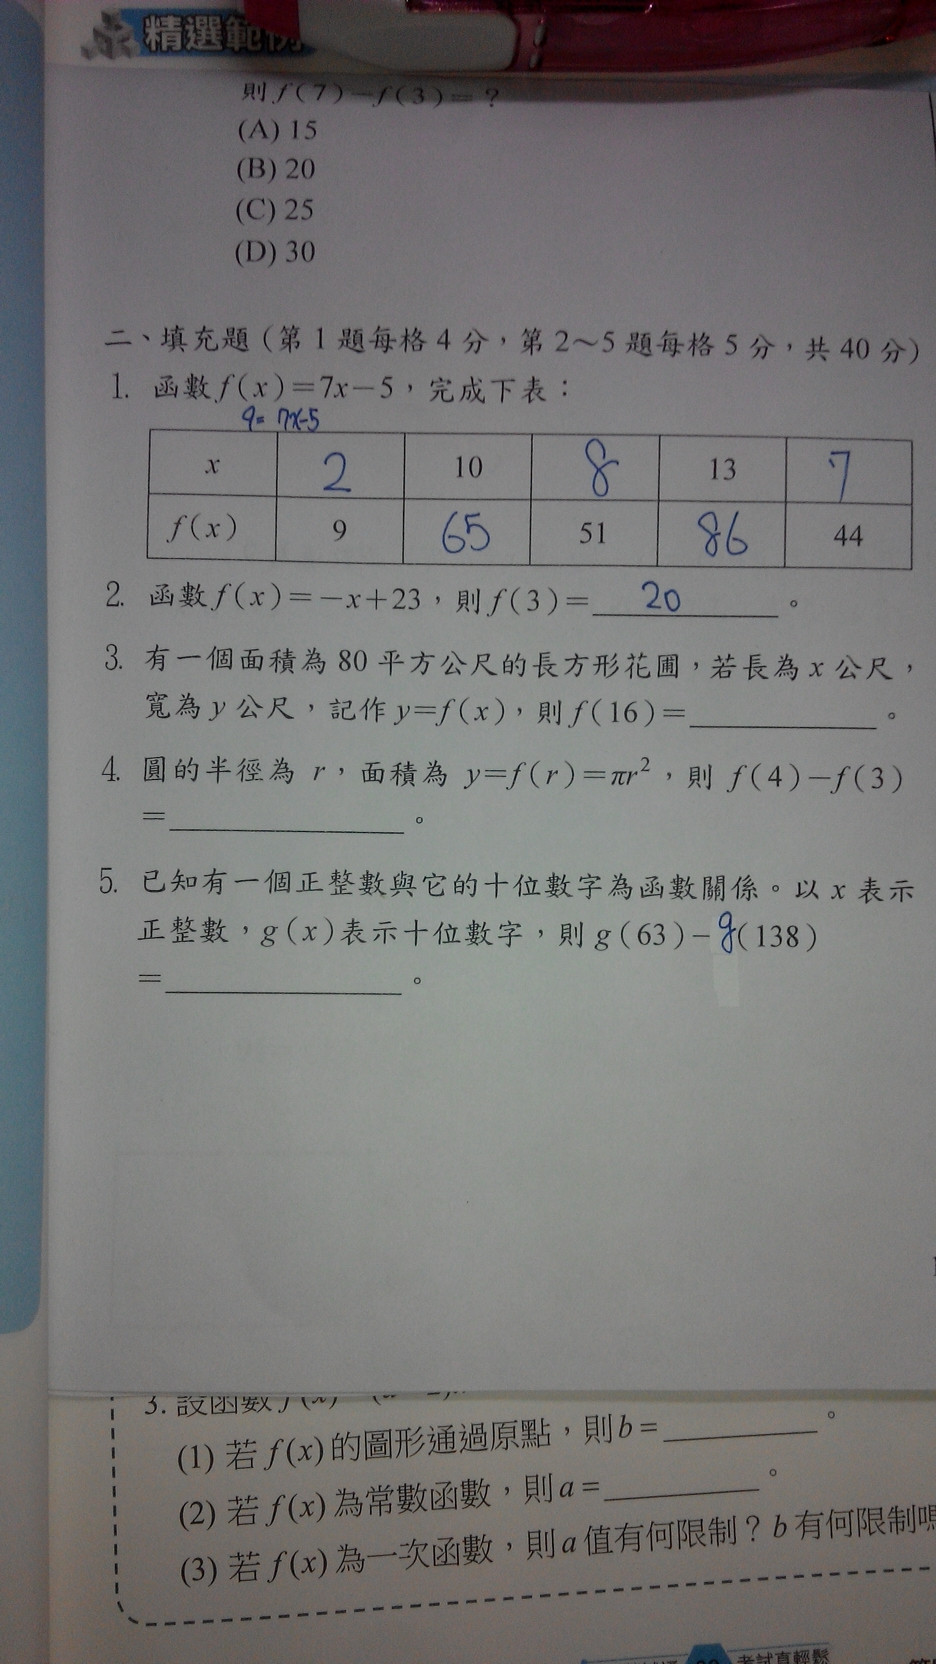 精選範例
則f(7)-f(3)=?
(A) 15
(B) 20
(C) 25
(D) 30
二、填充題(第1題每格4分,第2~5題每格5分,共40分)
1. 函數f(x)=7x-5,完成下表:
9=7x-5
x 2 10 8 13 7
f(x) 9 65 51 86 44
2. 函數f(x)=-x+23,則f(3)=20。
3. 有一個面積為80平方公尺的長方形花圃,若長為x公尺,
寬為y公尺,記作y=f(x),則f(16)=______。
4. 圓的半徑為 r,面積為 y=f(r)=πr²,則 f(4)-f(3)
=______。
5. 已知有一個正整數與它的十位數字為函數關係。以 x 表示
正整數,g(x)表示十位數字,則 g(63)-g(138)
=______。
3. 設函數f(x)
(1) 若 f(x) 的圖形通過原點,則b=______。
(2) 若 f(x) 為常數函數,則a=______。
(3) 若 f(x) 為一次函數,則a值有何限制?b有何限制嗎
考試真輕鬆